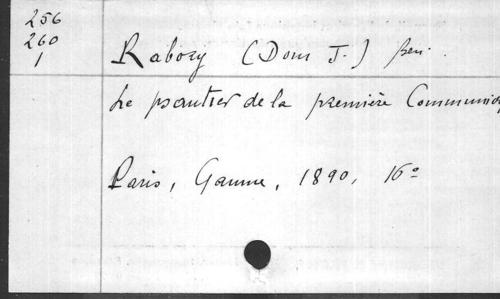 256
260
1
Rabory (Dom J.) ben.
Le psautier de la première Communion
Paris, Gaume, 1890, 16º